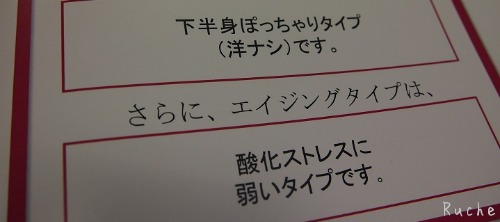 下半身ぽっちゃりタイプ
(洋ナシ)です。
さらに、エイジングタイプは、
酸化ストレスに
弱いタイプです。
Ruche